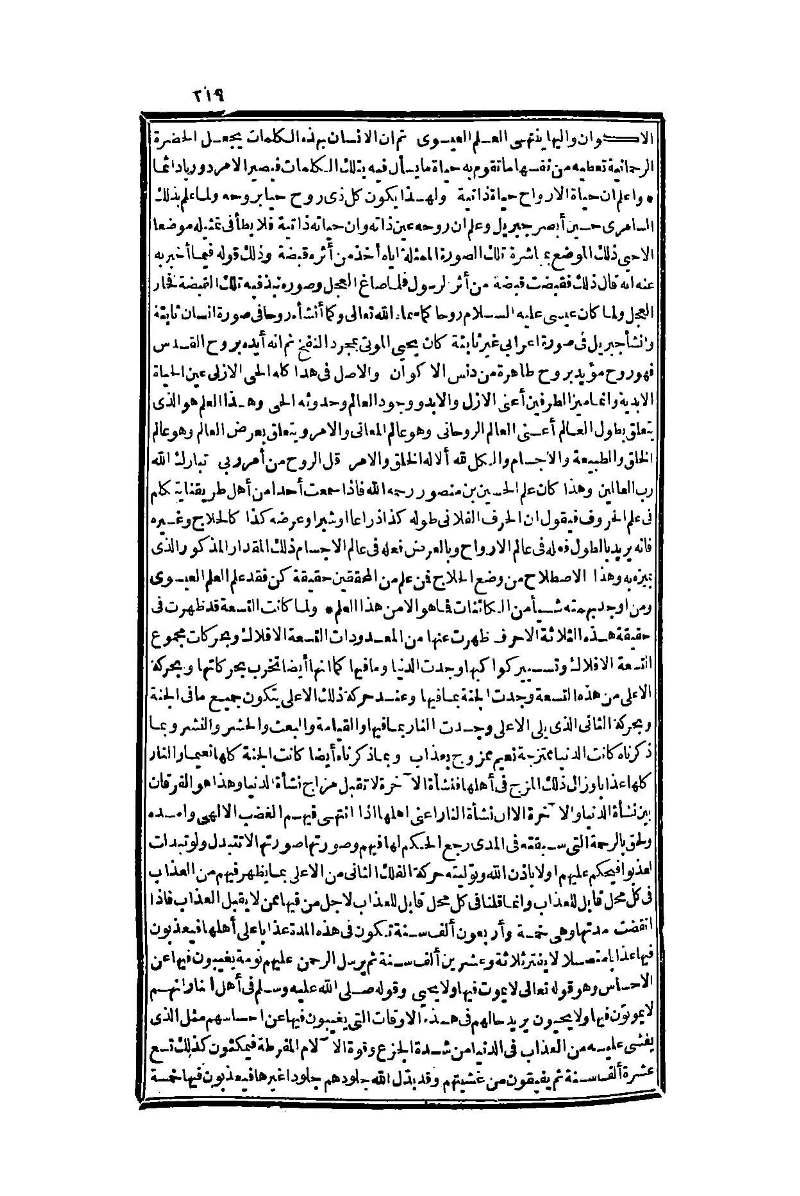 ٢١٩
الاكوان واليها ينتهى العلم العيسوى ثم ان الانسان بهذه الكلمات يجعل الحضرة
الرحمانية تعطيه من نفسها ما تقوم به حياة ما يسأل فيه بتلك الكلمات فيصير الامر دوريا دائما
* واعلم ان حياة الارواح حياة ذاتية ولهذا يكون كل ذى روح حيا بروحه ولما علم بذلك
السامرى حين أبصر جبريل وعلم ان روحه عين ذاته وان حياته ذاتية فلا يطأ فى تمثله موضعا
الاحيى ذلك الموضع بمباشرة تلك الصورة الممثلة اياه أخذ من أثره قبضة وذلك قوله فيما أخبر به
عنه انه قال ذلك فقبضت قبضة من أثر الرسول فلما صاغ العجل وصوره نبذ فيه تلك القبضة فخار
العجل ولما كان عيسى عليه السلام روحا كما سماه الله تعالى وكما أنشأه روحا فى صورة انسان ثابتة
وانشأ جبريل فى صورة اعرابى غير ثابتة كان يحيى الموتى بمجرد النفخ ثم انه أيده بروح القدس
فهو روح مؤيد بروح طاهرة من دنس الاكوان والاصل فى هذا كله الحى الازلى عين الحياة
الابدية وانما ميز الطرفين أعنى الازل والابد وجود العالم وحدوثه الحى وهذا العلم هو الذى
يتعلق بطول العالم أعنى العالم الروحانى وهو عالم المعانى والامر ويتعلق بعرض العالم وهو عالم
الخلق والطبيعة والاجسام والكل لله ألا له الخلق والامر قل الروح من أمر ربى تبارك الله
رب العالمين وهذا كان علم الحسين بن منصور رحمه الله فاذا سمعت أحدا من أهل طريقنا يتكلم
فى علم الحروف فيقول ان الحرف الفلانى طوله كذا ذراعا أو شبرا وعرضه كذا كالحلاج وغيره
فانه يريد بالطول فعله فى عالم الارواح وبالعرض فعله فى عالم الاجسام ذلك المقدار المذكور الذى
يميزه به وهذا الاصطلاح من وضع الحلاج فمن علم من المحققين حقيقة كن فقد علم العلم العيسوى
ومن أوجد بهمته شيأ من الكائنات فما هو الا من هذا العلم * ولما كانت التسعة قد ظهرت فى
حقيقة هذه الثلاثة الاحرف ظهرت عنها من المعدودات التسعة الافلاك وبحركات مجموع
التسعة الافلاك وتسيير كواكبها وجدت الدنيا وما فيها كما انها أيضا تخرب بحركاتها وبحركة
الاعلى من هذه التسعة وجدت الجنة بما فيها وعند حركة ذلك الاعلى يتكون جميع ما فى الجنة
وبحركة الثانى الذى يلى الاعلى وجدت النار بما فيها والقيامة والبعث والحشر والنشر وبما
ذكرناه كانت الدنيا ممتزجة نعيم ممزوج بعذاب وبما ذكرناه أيضا كانت الجنة كلها نعيما والنار
كلها عذابا وزال ذلك المزج فى أهلها فنشأة الآخرة لا تقبل مزاج نشأة الدنيا وهذا هو الفرقان
بين نشأة الدنيا والآخرة الا ان نشأة النار اعنى اهلها اذا انتهى فيهم الغضب الالهى وامده
ولحق بالرحمة التى سبقته فى المدى رجع الحكم لها فيهم وصورتها صورتها لا تتبدل ولو تبدلت
لعذبوا فيحكم عليهم اولا باذن الله وتوليته حركة الفلك الثانى من الاعلى بما يظهر فيهم من العذاب
فى كل محل قابل للعذاب وانما قلنا فى كل محل قابل للعذاب لاجل من فيها ممن لا يقبل العذاب فاذا
انقضت مدتها وهى خمسة وأربعون ألف سنة تكون فى هذه المدة عذابا على أهلها فيعذبون
فيها عذابا متصلا لا يفتر ثلاثة وعشرين ألف سنة ثم يرسل الرحمن عليهم نومة يغيبون فيها عن
الاحساس وهو قوله تعالى لا يموت فيها ولا يحيى وقوله صلى الله عليه وسلم فى أهل النار انهم
لا يموتون فيها ولا يحيون يريد حالهم فى هذه الاوقات التى يغيبون فيها عن احساسهم مثل الذى
يغشى عليه من العذاب فى الدنيا من شدة الجزع وقوة الآلام المفرطة فيمكثون كذلك تسع
عشرة ألف سنة ثم يفيقون من غشيتهم وقد بدل الله جلودهم جلودا غيرها فيعذبون فيها خمسة